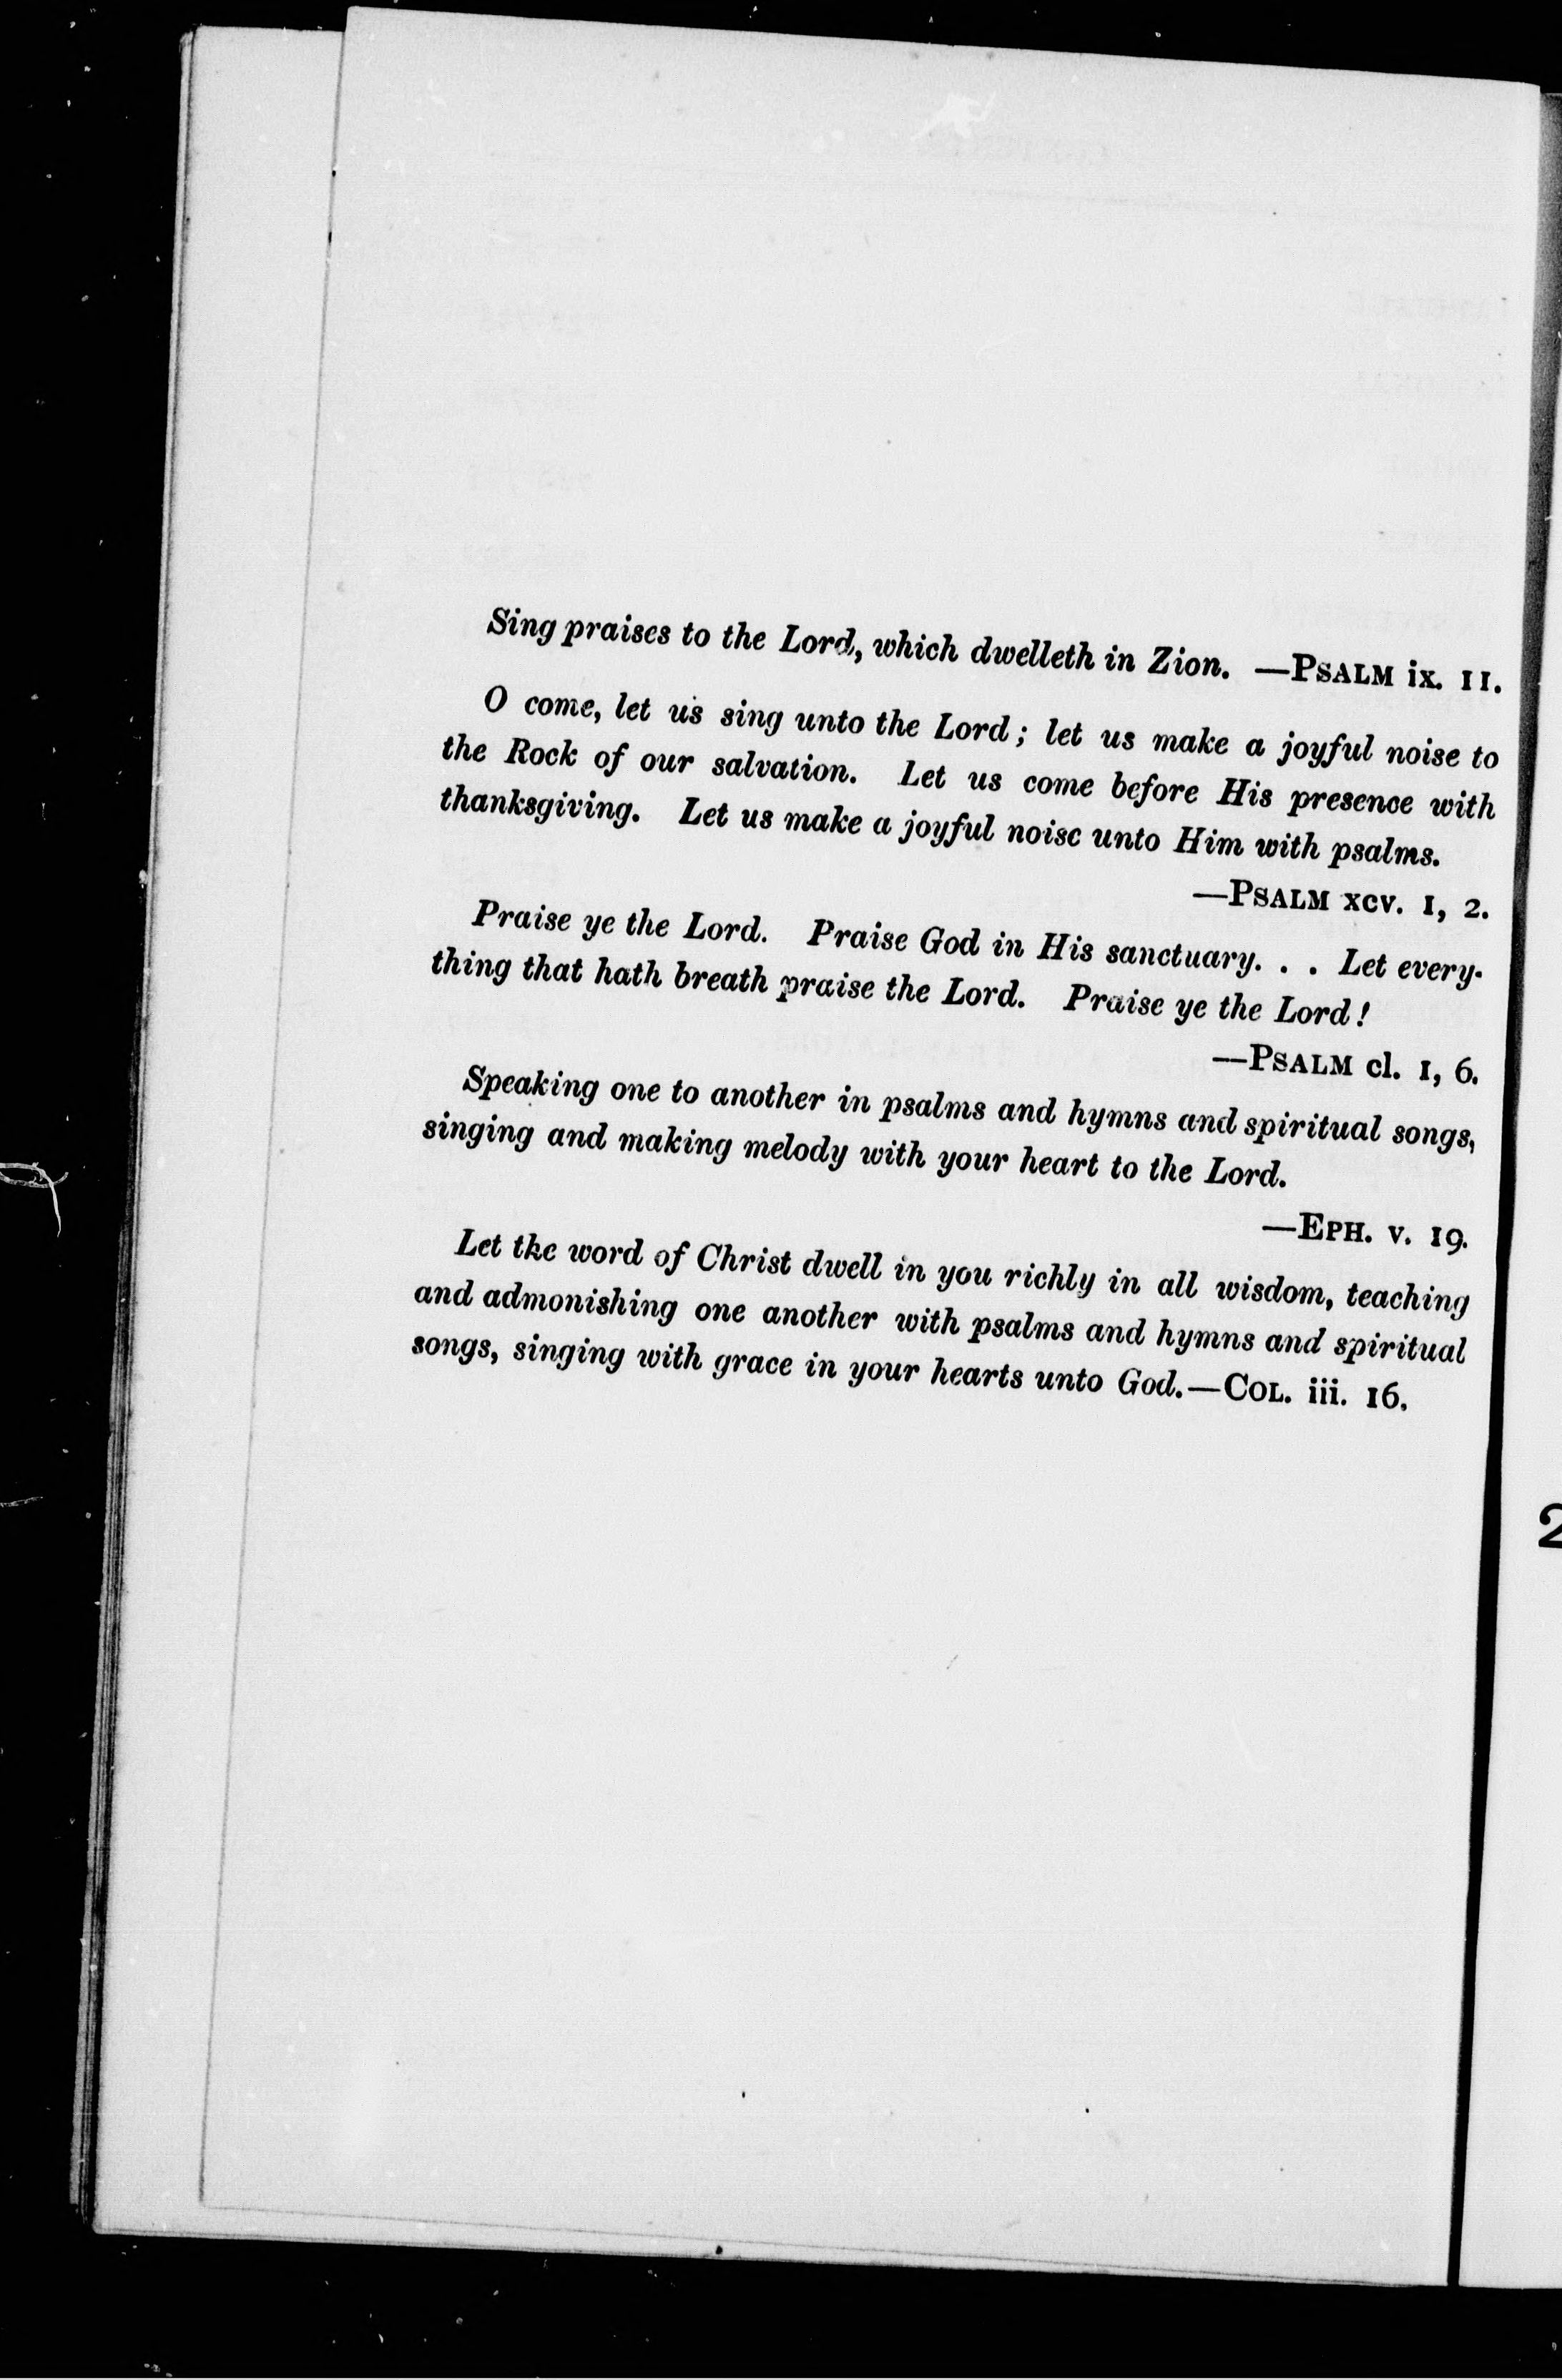 Sing praises to the Lord, which dwelleth in Zion. —PSALM ix. 11.
O come, let us sing unto the Lord; let us make a joyful noise to
the Rock of our salvation. Let us come before His presence with
thanksgiving. Let us make a joyful noise unto Him with psalms.
—PSALM xcv. 1, 2.
Praise ye the Lord. Praise God in His sanctuary. . . Let every-
thing that hath breath praise the Lord. Praise ye the Lord!
—PSALM cl. 1, 6.
Speaking one to another in psalms and hymns and spiritual songs,
singing and making melody with your heart to the Lord.
—EPH. v. 19.
Let the word of Christ dwell in you richly in all wisdom, teaching
and admonishing one another with psalms and hymns and spiritual
songs, singing with grace in your hearts unto God.—COL. iii. 16.
2